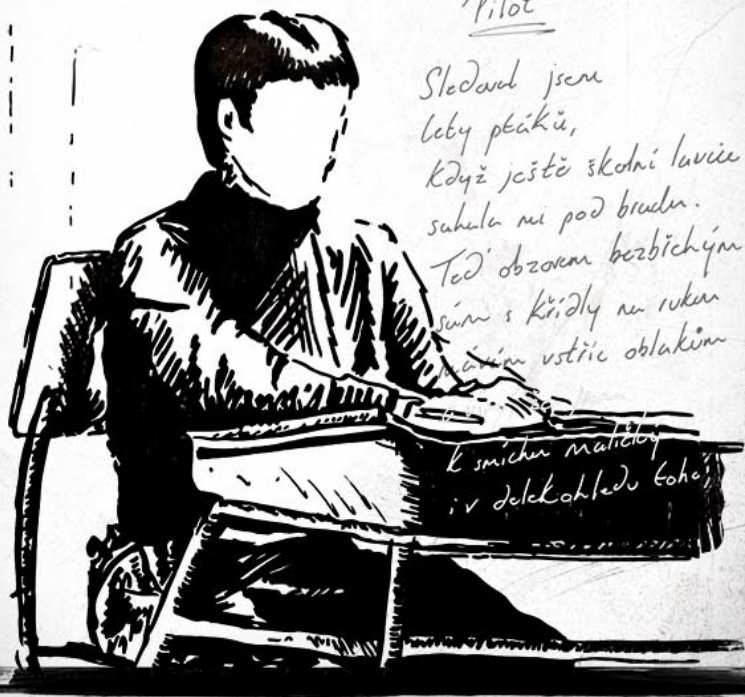 Pilot
Sledoval jsem
lety ptáků,
když ještě školní lavice
sahala mi pod bradu.
Teď obzorem bezbřehým
sám s křídly na rukou
mávám vstříc oblakům
k smíchu maličký
i v dalekohledu toho,